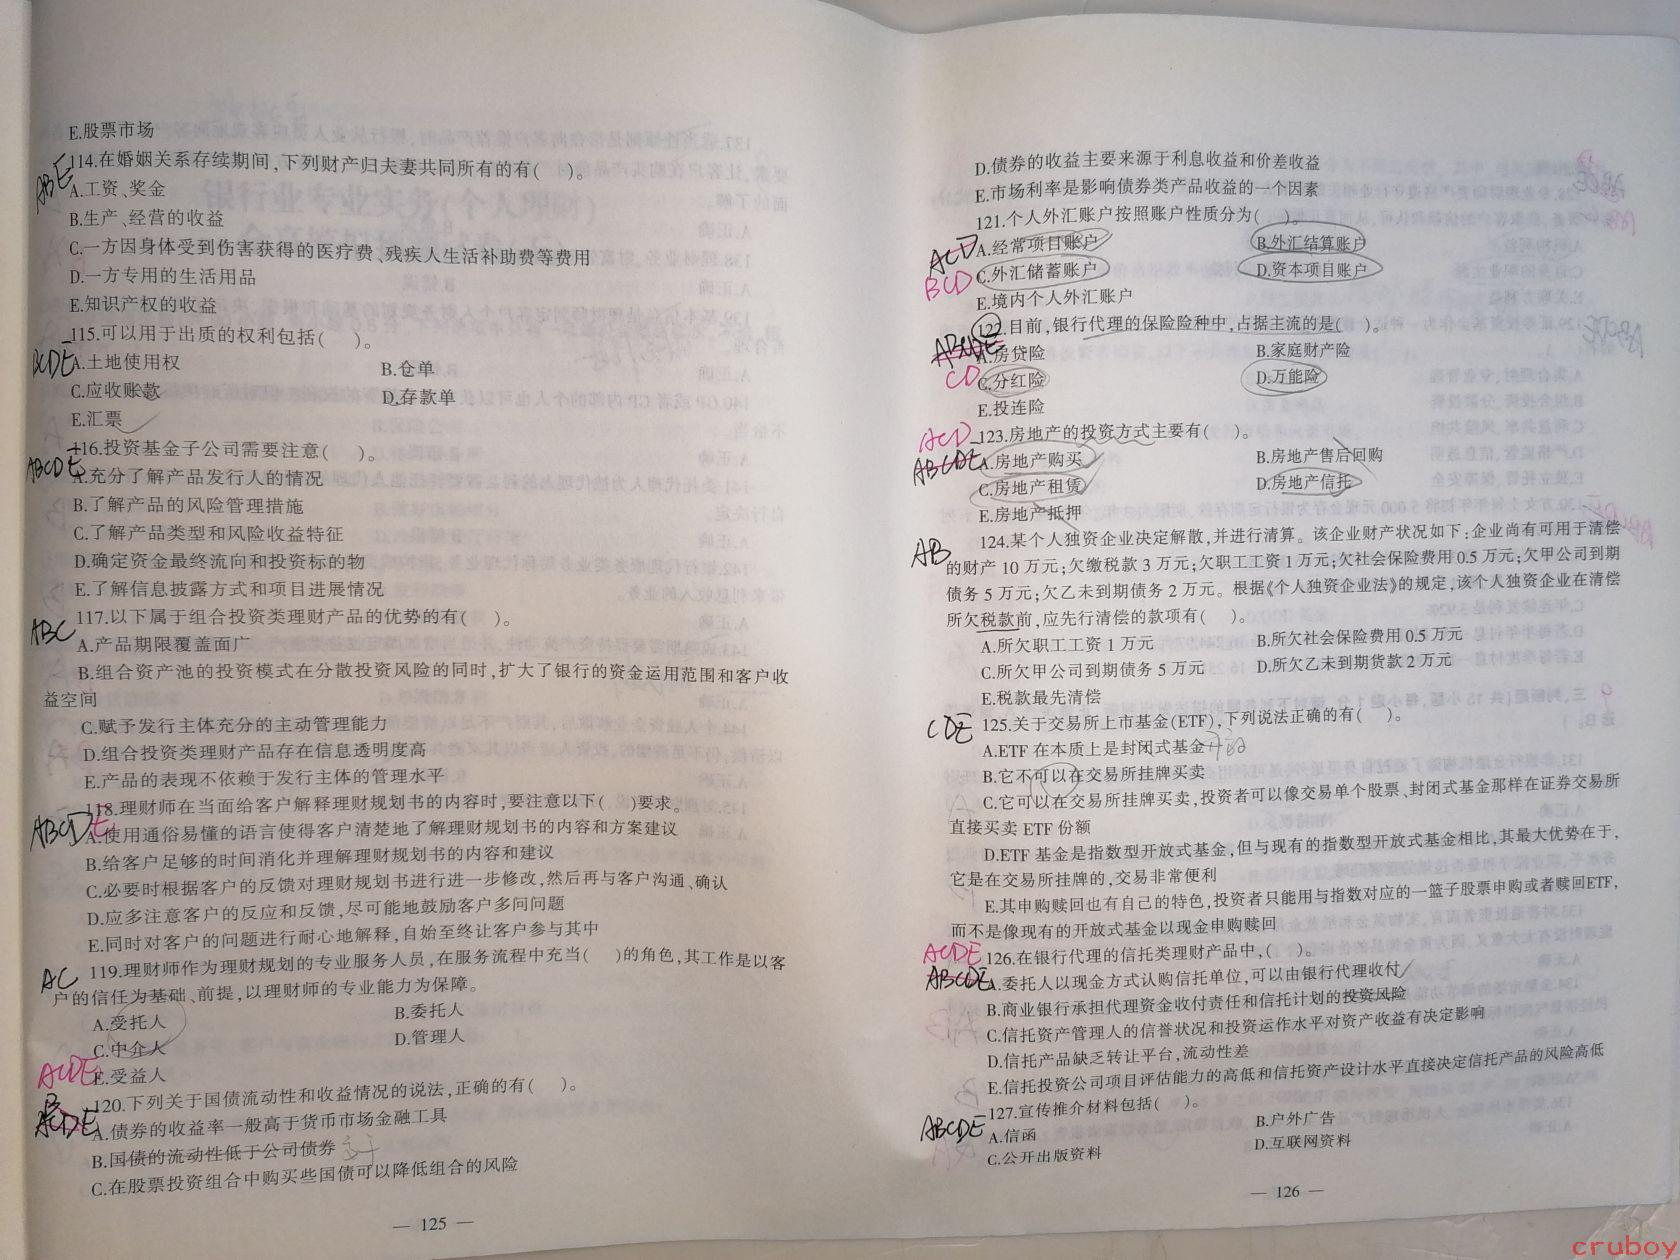 E.股票市场
ABE
114.在婚姻关系存续期间,下列财产归夫妻共同所有的有(　)。
A.工资、奖金
B.生产、经营的收益
C.一方因身体受到伤害获得的医疗费、残疾人生活补助费等费用
D.一方专用的生活用品
E.知识产权的收益
115.可以用于出质的权利包括(　)。
BCDE
A.土地使用权
B.仓单
C.应收账款
D.存款单
E.汇票
116.投资基金子公司需要注意(　)。
ABCDE
A.充分了解产品发行人的情况
B.了解产品的风险管理措施
C.了解产品类型和风险收益特征
D.确定资金最终流向和投资标的物
E.了解信息披露方式和项目进展情况
ABC
117.以下属于组合投资类理财产品的优势的有(　)。
A.产品期限覆盖面广
B.组合资产池的投资模式在分散投资风险的同时,扩大了银行的资金运用范围和客户收
益空间
C.赋予发行主体充分的主动管理能力
D.组合投资类理财产品存在信息透明度高
E.产品的表现不依赖于发行主体的管理水平
118.理财师在当面给客户解释理财规划书的内容时,要注意以下(　)要求。
ABCDE
A.使用通俗易懂的语言使得客户清楚地了解理财规划书的内容和方案建议
B.给客户足够的时间消化并理解理财规划书的内容和建议
C.必要时根据客户的反馈对理财规划书进行进一步修改,然后再与客户沟通、确认
D.应多注意客户的反应和反馈,尽可能地鼓励客户多问问题
E.同时对客户的问题进行耐心地解释,自始至终让客户参与其中
AC
119.理财师作为理财规划的专业服务人员,在服务流程中充当(　)的角色,其工作是以客
户的信任为基础、前提,以理财师的专业能力为保障。
A.受托人
B.委托人
C.中介人
D.管理人
E.受益人
ACDE
120.下列关于国债流动性和收益情况的说法,正确的有(　)。
A.债券的收益率一般高于货币市场金融工具
B.国债的流动性低于公司债券
C.在股票投资组合中购买些国债可以降低组合的风险
— 125 —
D.债券的收益主要来源于利息收益和价差收益
E.市场利率是影响债券类产品收益的一个因素
121.个人外汇账户按照账户性质分为(　)。
ACD
A.经常项目账户
B.外汇结算账户
BCD
C.外汇储蓄账户
D.资本项目账户
E.境内个人外汇账户
122.目前,银行代理的保险险种中,占据主流的是(　)。
ABCDE
A.房贷险
B.家庭财产险
CD
C.分红险
D.万能险
E.投连险
ACD
123.房地产的投资方式主要有(　)。
ABCDE
A.房地产购买
B.房地产售后回购
C.房地产租赁
D.房地产信托
E.房地产抵押
AB
124.某个人独资企业决定解散,并进行清算。该企业财产状况如下:企业尚有可用于清偿
的财产 10 万元;欠缴税款 3 万元;欠职工工资 1 万元;欠社会保险费用 0.5 万元;欠甲公司到期
债务 5 万元;欠乙未到期债务 2 万元。根据《个人独资企业法》的规定,该个人独资企业在清偿
所欠税款前,应先行清偿的款项有(　)。
A.所欠职工工资 1 万元
B.所欠社会保险费用 0.5 万元
C.所欠甲公司到期债务 5 万元
D.所欠乙未到期货款 2 万元
E.税款最先清偿
CDE
125.关于交易所上市基金(ETF),下列说法正确的有(　)。
A.ETF 在本质上是封闭式基金
B.它不可以在交易所挂牌买卖
C.它可以在交易所挂牌买卖,投资者可以像交易单个股票、封闭式基金那样在证券交易所
直接买卖 ETF 份额
D.ETF 基金是指数型开放式基金,但与现有的指数型开放式基金相比,其最大优势在于,
它是在交易所挂牌的,交易非常便利
E.其申购赎回也有自己的特色,投资者只能用与指数对应的一篮子股票申购或者赎回ETF,
而不是像现有的开放式基金以现金申购赎回
ACDE
126.在银行代理的信托类理财产品中,(　)。
ABCDE
A.委托人以现金方式认购信托单位,可以由银行代理收付
B.商业银行承担代理资金收付责任和信托计划的投资风险
C.信托资产管理人的信誉状况和投资运作水平对资产收益有决定影响
D.信托产品缺乏转让平台,流动性差
E.信托投资公司项目评估能力的高低和信托资产设计水平直接决定信托产品的风险高低
127.宣传推介材料包括(　)。
ABCDE
A.信函
B.户外广告
C.公开出版资料
D.互联网资料
— 126 —
cruboy